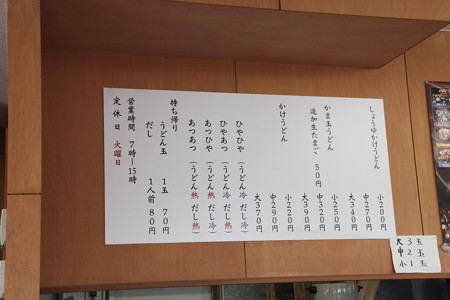 しょうゆかけうどん
小200円
中270円
大340円
かま玉うどん
追加生たまご 50円
小250円
中320円
大390円
かけうどん
小220円
中290円
大370円
ひやひや (うどん冷 だし冷)
ひやあつ (うどん冷 だし熱)
あつひや (うどん熱 だし冷)
あつあつ (うどん熱 だし熱)
持ち帰り
うどん玉 1玉 70円
だし 1人前 80円
営業時間 7時〜15時
定休日 火曜日
大3玉
中2玉
小1玉